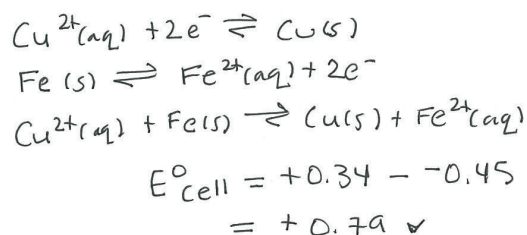 Cu²⁺(aq) + 2e⁻ ⇌ Cu(s)
Fe (s) ⇌ Fe²⁺(aq) + 2e⁻
Cu²⁺(aq) + Fe(s) ⇌ Cu(s) + Fe²⁺(aq)
E°cell = +0.34 - -0.45
= +0.79 ✓